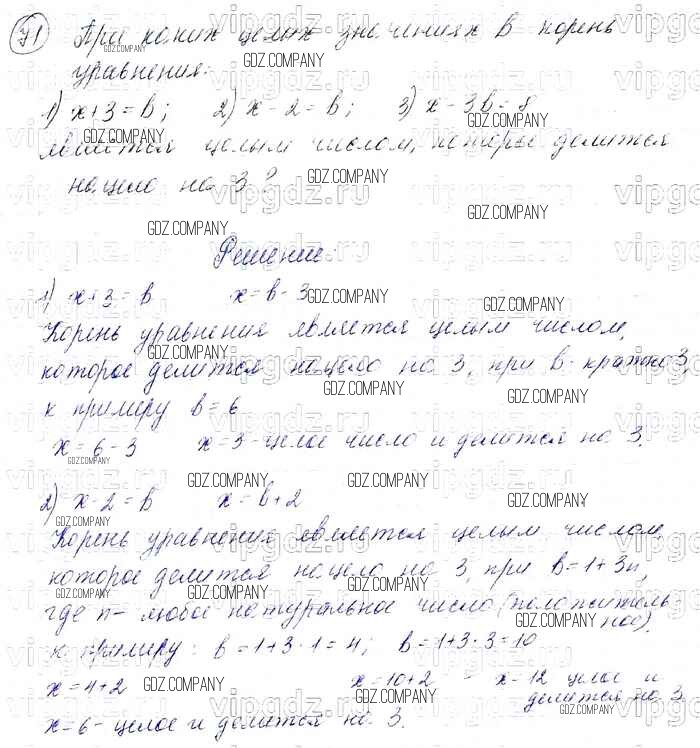 71 При каких целых значениях b корень
уравнения:
1) x+3=b; 2) x-2=b; 3) x-3b=8
является целым числом, которое делится
нацело на 3?
Решение
1) x+3=b x=b-3
Корень уравнения является целым числом,
которое делится нацело на 3, при b-кратно 3,
к примеру b=6
x=6-3 x=3-целое число и делится на 3.
2) x-2=b x=b+2
Корень уравнения является целым числом,
которое делится нацело на 3, при b=1+3n,
где n- любое натуральное число (положитель-
ное).
к примеру: b=1+3·1=4; b=1+3·3=10
x=4+2 x=10+2 - x-12 целое и
делится на 3.
x=6-целое и делится на 3.
GDZ.COMPANY
vipgdz.ru